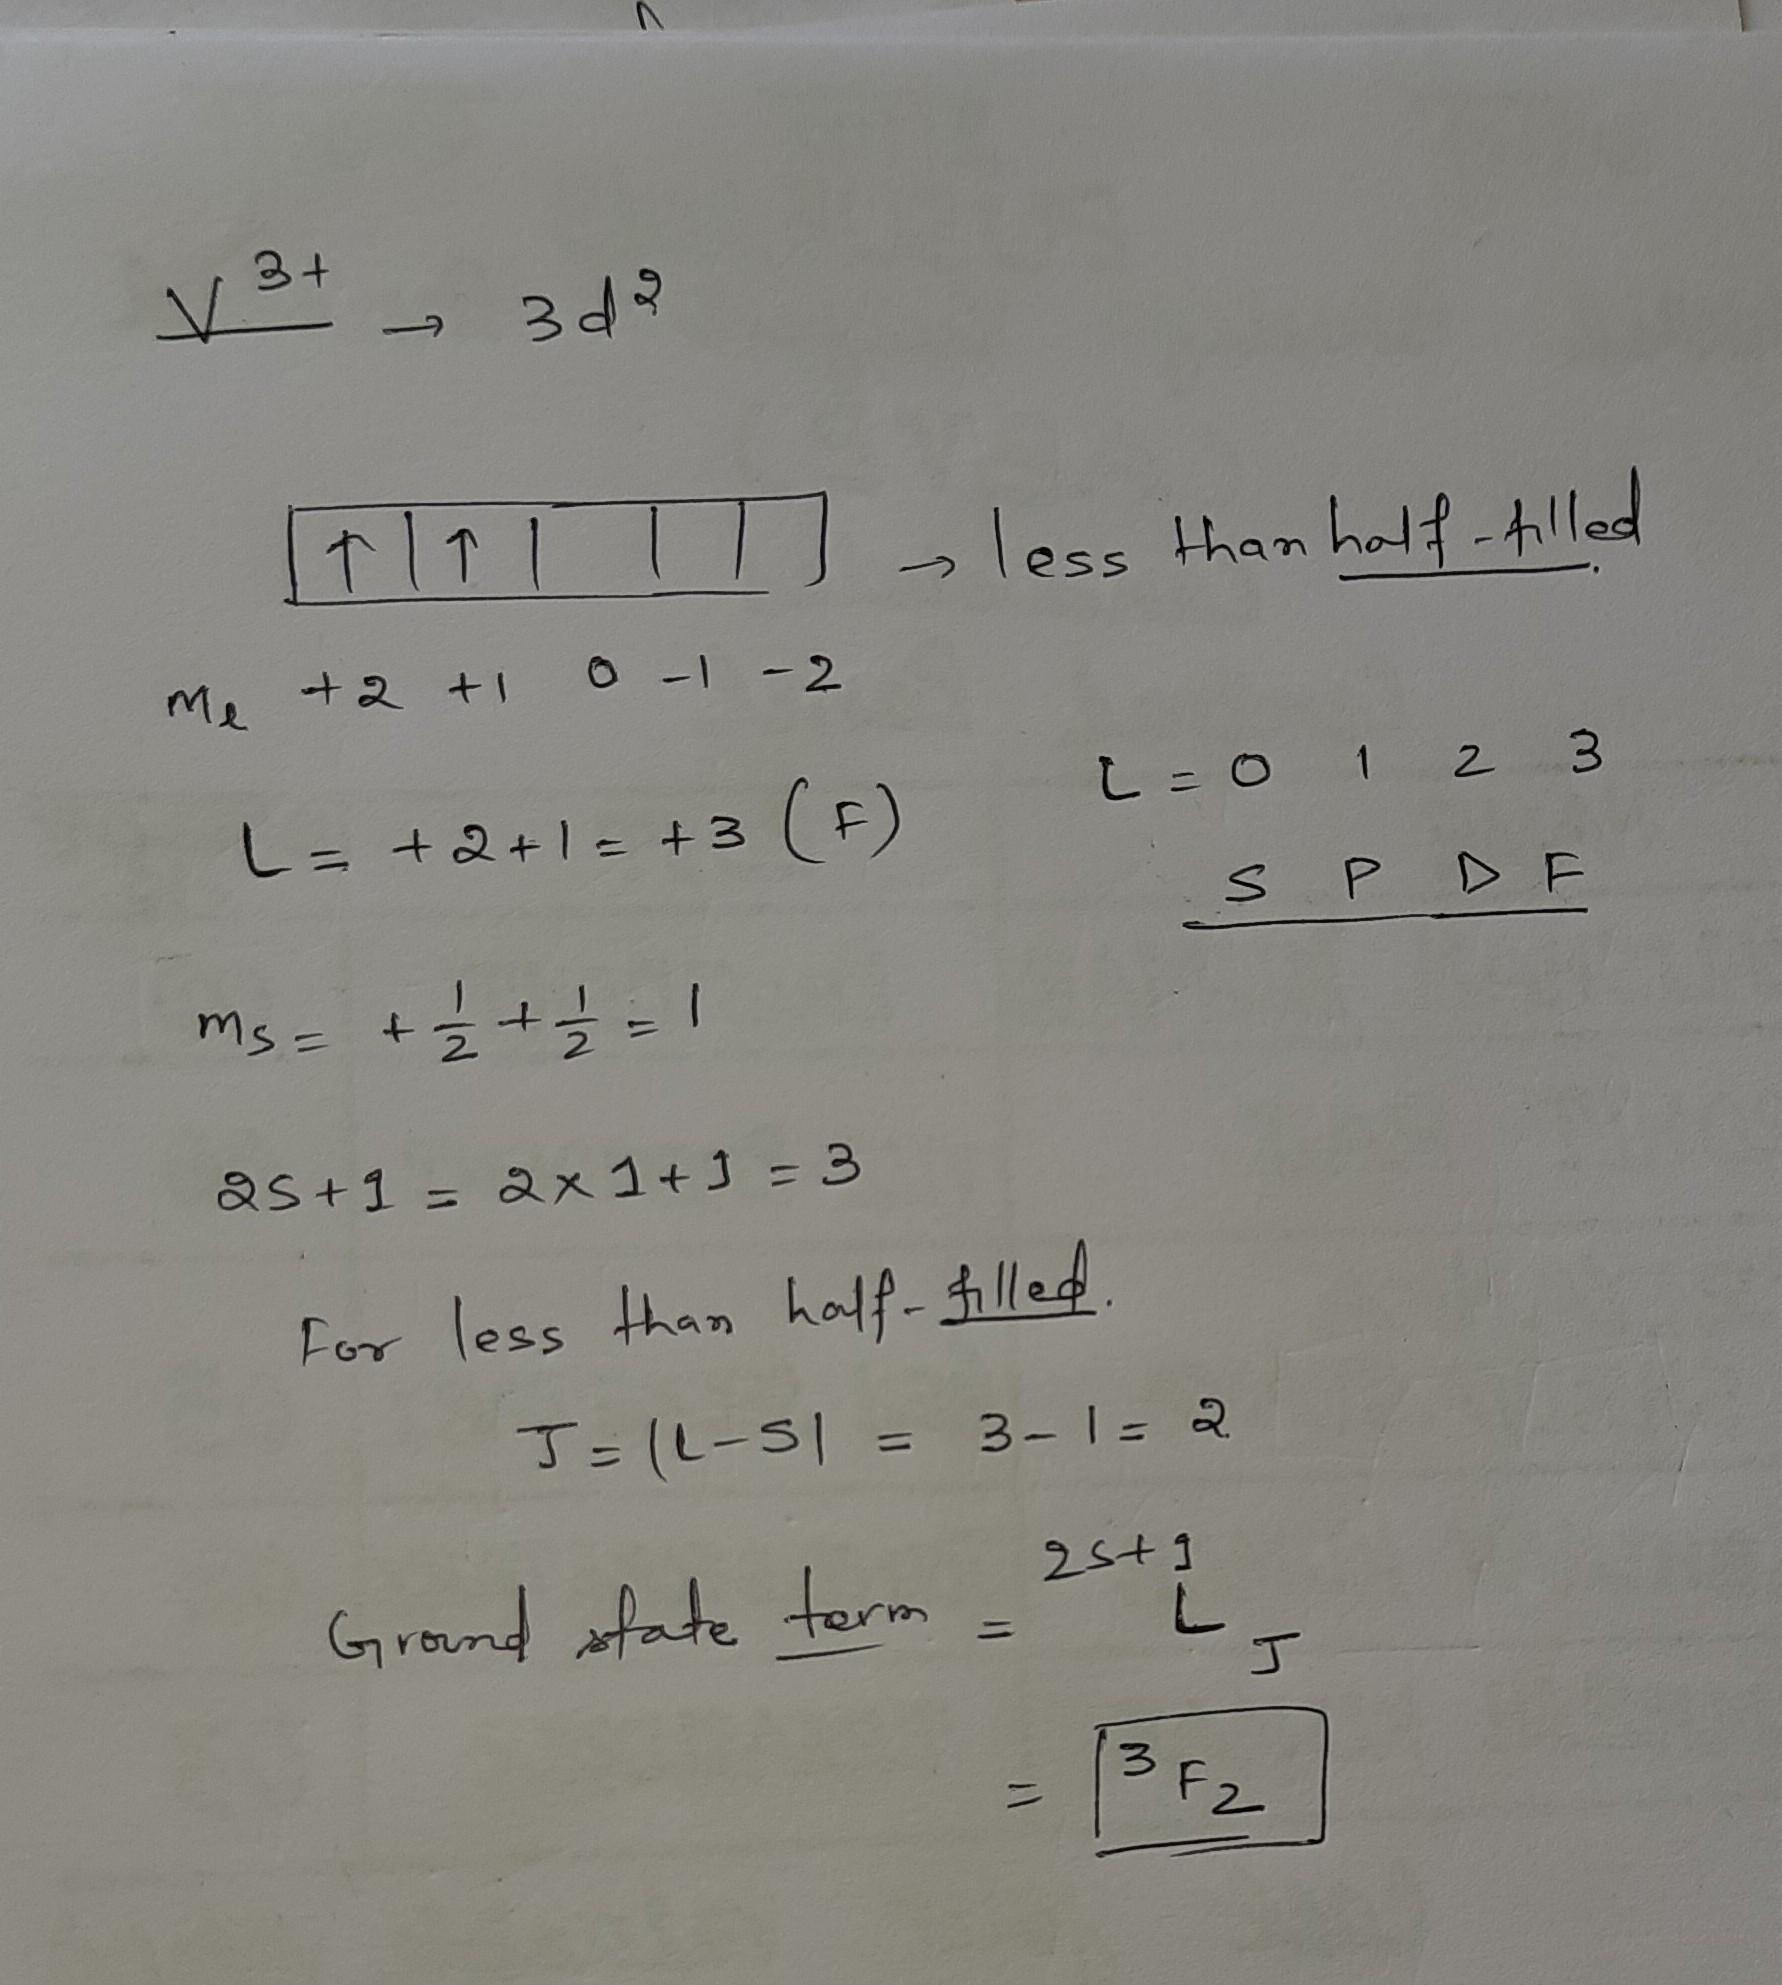 V³⁺ → 3d²
↑ ↑ → less than half-filled.
mₑ +2 +1 0 -1 -2
L = 0 1 2 3
L = +2+1 = +3 (F)
S P D F
ms = +1/2 + 1/2 = 1
2S+1 = 2×1+1 = 3
For less than half-filled.
J = |L-S| = 3-1 = 2
Ground state term = ²ˢ⁺¹L_J
= ³F₂